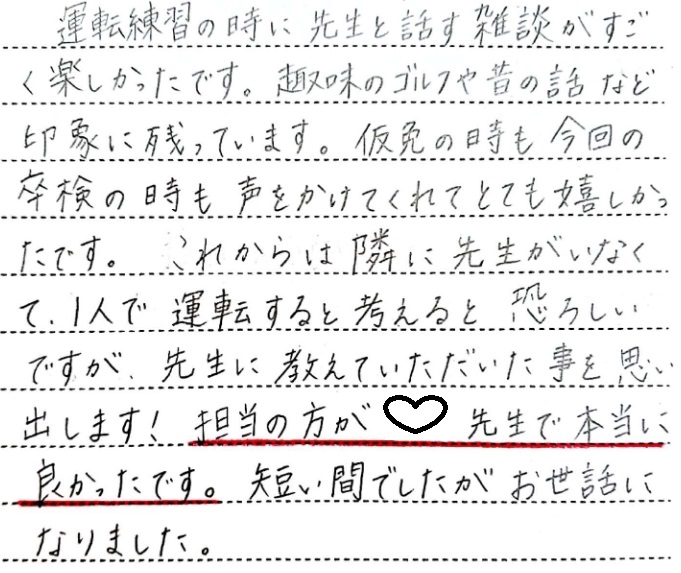 運転練習の時に先生と話す雑談がすご
く楽しかったです。趣味のゴルフや昔の話など
印象に残っています。仮免の時も今回の
卒検の時も声をかけてくれてとても嬉しかっ
たです。これからは隣に先生がいなく
て、1人で運転すると考えると恐ろしい
ですが、先生に教えていただいた事を思い
出します！担当の方が♡先生で本当に
良かったです。短い間でしたがお世話に
なりました。